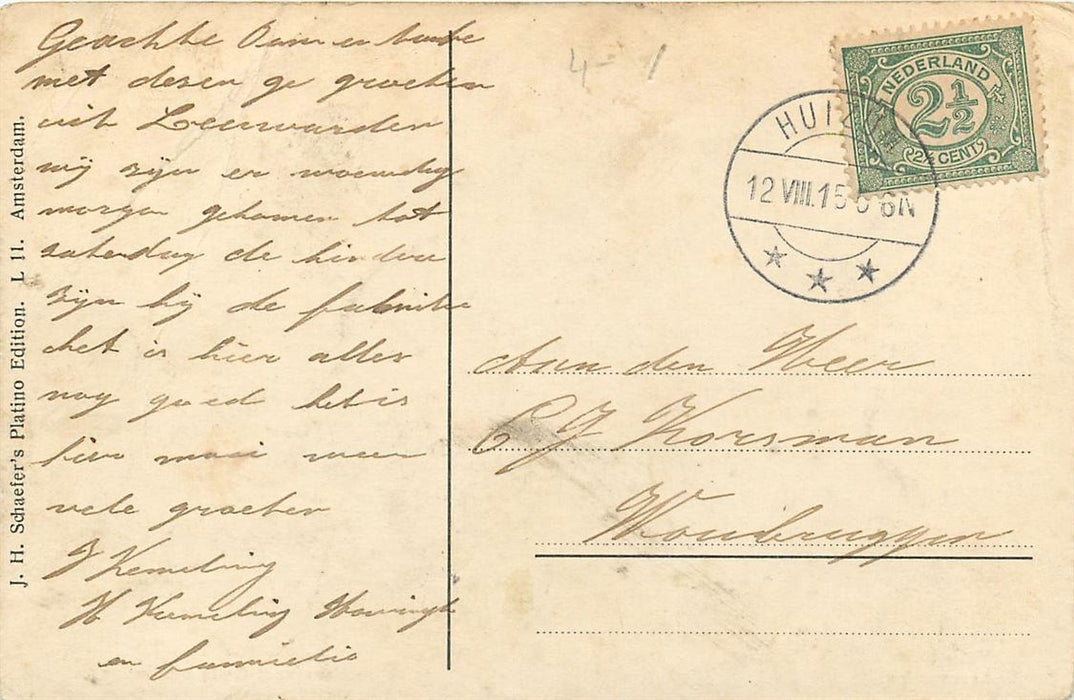 Geachte Oom en tante
met dezen ge groeten
uit Leeuwarden
wij zijn er woensdag
morgen gekomen tot
zaterdag de kinders
zijn bij de familie
het is hier alles
nog goed het is
hier mooi weer
vele groeten
J Kemeling
H Kemeling
en familie
J. H. Schaefer's Platino Edition. L 11. Amsterdam.
4 - 1
NEDERLAND
2½
2½ CENT
HUIZUM
12 VIII.15 6N
Aan den Heer
C J Korsman
Woubruggen